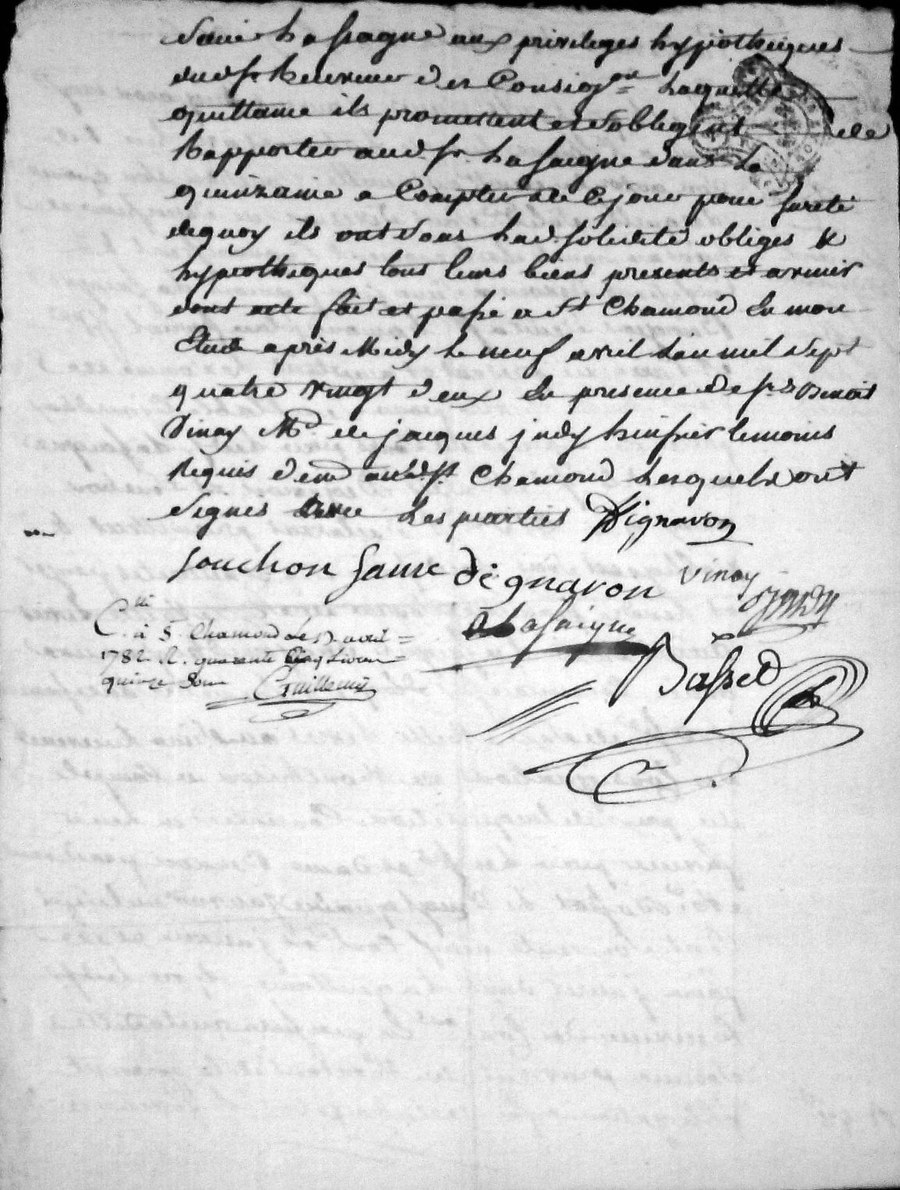 dudit Lassagne aux privileges hypotheques
dud. sr receveur des Consigons laquelle
quittance ils promettent et s'obligent de
Rapporter aud. sr. Lassaigne dans la
quinzaine a Compter de ce jour pour sureté
dequoy ils ont sous lad. solidité obligés &
hypotheques tous leurs biens presents et avenir
dont acte fait et passé a St Chamond En mon
Etude après Midy Le neuf avril L'an mil sept
quatre vingt deux En presence de srs Benoit
Vinay Md de jacques judy Lemoins
Requis dem. aud. St. Chamond Lesquels ont
signés avec Les parties Dignaron
souchon fame dégnaron vinay
judy
Lassaigne
Basset
C.lle à S. Chamond Le avril
1782 R. quarante Cinq Livres
quinze Sous Guillemin